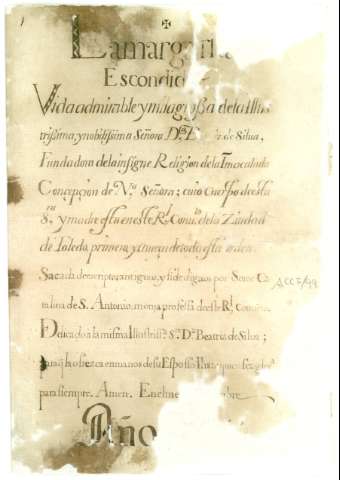 ✠
La margari
Escondid
Vida admirable y milagrossa de la Illus
trissima, y nobilissima Señora D.ª B de Silua,
Fundadora de la insigne Religion de la Inmaculada
Concepcion de N.ª Señora; cuio Cuerpo de esta
S.ra y madre esta en este R.l Conu.to de la Ziudad
de Toledo, primero, y caueza de toda esta orden.
Sacada de escriptos antiguos, y fidedignos por Soror Ca
talina de S. Antonio, monja professa de este R.l Conuento.
Dedicado a la misma Illustriss.ª S.ª D.ª Beatriz de Silua;
para q̃ lo ofrezca en manos de su Esposso
para siempre. Amen. En el bre
Año
ACC 7/99